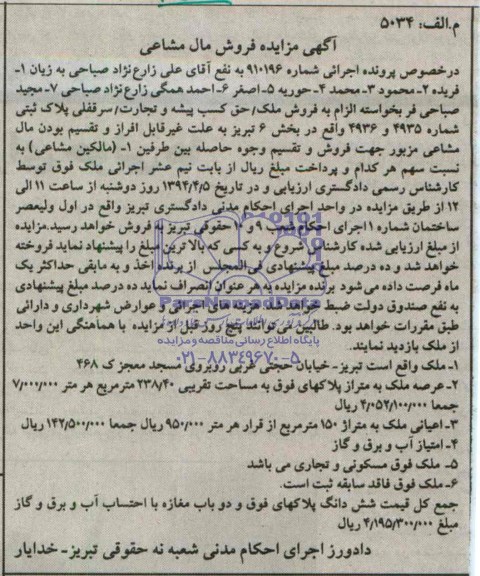 م.الف: ۵۰۳۴
آگهی مزایده فروش مال مشاعی
درخصوص پرونده اجرائی شماره ۹۱۰۱۹۶ به نفع آقای علی زارع نژاد صباحی به زیان ۱-
فریده ۲- محمود ۳- محمد ۴- حوریه ۵- اصغر ۶- احمد همگی زارع نژاد صباحی ۷- مجید
صباحی فر بخواسته الزام به فروش ملک/حق کسب پیشه و تجارت/سرقفلی پلاک ثبتی
شماره ۴۹۳۵ و ۴۹۳۶ واقع در بخش ۶ تبریز به علت غیرقابل افراز و تقسیم بودن مال
مشاعی مزبور جهت فروش و تقسیم وجوه حاصله بین طرفین ۱- (مالکین مشاعی) به
نسبت سهم هر کدام و پرداخت مبلغ ریال از بابت نیم عشر اجرائی ملک فوق توسط
کارشناس رسمی دادگستری ارزیابی و در تاریخ ۱۳۹۴/۴/۵ روز دوشنبه از ساعت ۱۱ الی
۱۲ از طریق مزایده در واحد اجرای احکام مدنی دادگستری تبریز واقع در اول ولیعصر
ساختمان شماره ۱ اجرای احکام شعب ۹ و ۱۰ حقوقی تبریز به فروش خواهد رسید. مزایده
از مبلغ ارزیابی شده کارشناس شروع و به کسی که بالاترین مبلغ را پیشنهاد نماید فروخته
خواهد شد و ده درصد مبلغ پیشنهادی فی المجلس از برنده اخذ و به مابقی حداکثر یک
ماه فرصت داده می شود برنده مزایده به هر عنوان انصراف نماید ده درصد مبلغ پیشنهادی
به نفع صندوق دولت ضبط خواهد شد. هزینه های اجرائی و عوارض شهرداری و دارائی
طبق مقررات خواهد بود. طالبین می توانند پنج روز قبل از مزایده با هماهنگی این واحد
از ملک بازدید نمایند.
پایگاه اطلاع رسانی مناقصه و مزایده
۰۲۱-۸۸۳۴۹۶۷۰-۵
۱- ملک واقع است تبریز- خیابان حجتی غربی روبروی مسجد معجز ک ۴۶۸
۲- عرصه ملک به متراژ پلاکهای فوق به مساحت تقریبی ۲۳۸/۴۰ مترمربع هر متر ۷/۰۰۰/۰۰۰
جمعا ۴/۰۵۲/۱۰۰/۰۰۰ ریال
۳- اعیانی ملک به متراژ ۱۵۰ مترمربع از قرار هر متر ۹۵۰/۰۰۰ ریال جمعا ۱۴۲/۵۰۰/۰۰۰ ریال
۴- امتیاز آب و برق و گاز
۵- ملک فوق مسکونی و تجاری می باشد
۶- ملک فوق فاقد سابقه ثبت است.
جمع کل قیمت شش دانگ پلاکهای فوق و دو باب مغازه با احتساب آب و برق و گاز
مبلغ ۴/۱۹۵/۳۰۰/۰۰۰ ریال
دادورز اجرای احکام مدنی شعبه نه حقوقی تبریز- خدایار